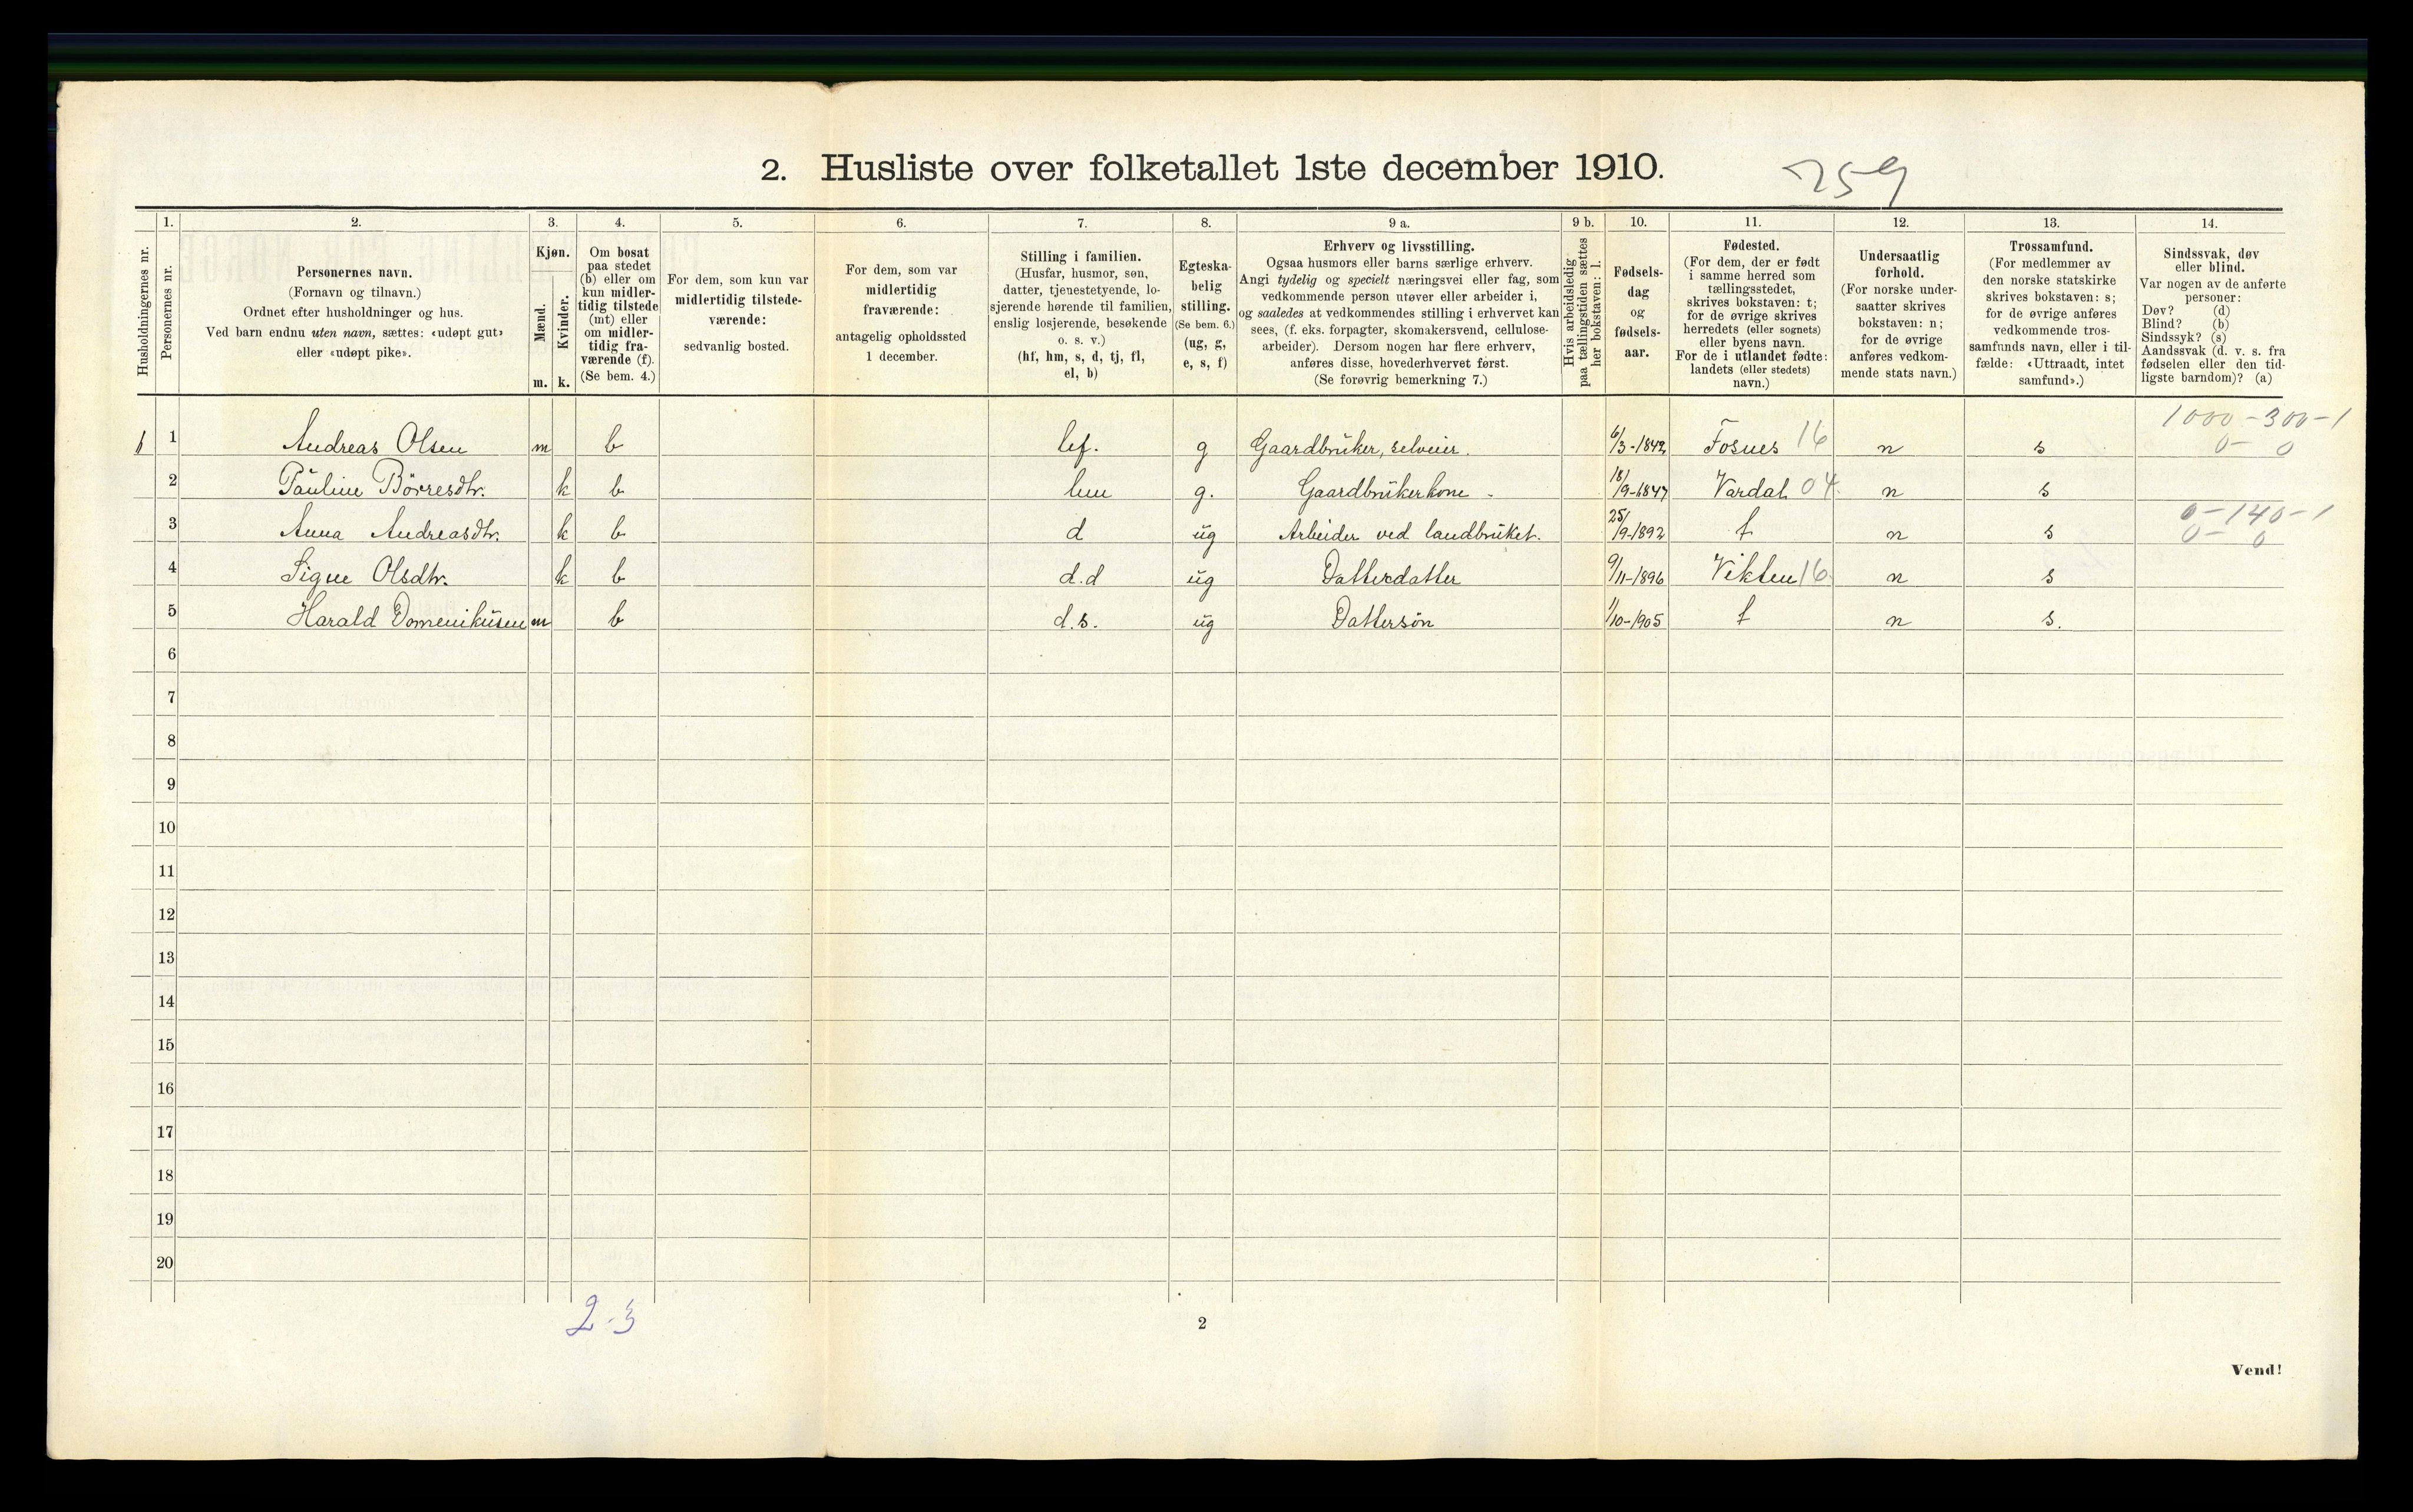 2. Husliste over folketallet 1ste december 1910.
259
1. 2. 3. 4. 5. 6. 7. 8. 9 a. 9 b. 10. 11. 12. 13. 14.
Husholdningernes nr.
Personernes nr.
Personernes navn.
(Fornavn og tilnavn.)
Ordnet efter husholdninger og hus.
Ved barn endnu uten navn, sættes: «udøpt gut»
eller «udøpt pike».
Kjøn.
Mænd.
Kvinder.
m. k.
Om bosat
paa stedet
(b) eller om
kun midler-
tidig tilstede
(mt) eller
om midler-
tidig fra-
værende (f).
(Se bem. 4.)
For dem, som kun var
midlertidig tilstede-
værende:
sedvanlig bosted.
For dem, som var
midlertidig
fraværende:
antagelig opholdssted
1 december.
Stilling i familien.
(Husfar, husmor, søn,
datter, tjenestetyende, lo-
sjerende hørende til familien,
enslig losjerende, besøkende
o. s. v.)
(hf, hm, s, d, tj, fl,
el, b)
Egteska-
belig
stilling.
(Se bem. 6.)
(ug, g,
e, s, f)
Erhverv og livsstilling.
Ogsaa husmors eller barns særlige erhverv.
Angi tydelig og specielt næringsvei eller fag, som
vedkommende person utøver eller arbeider i,
og saaledes at vedkommendes stilling i erhvervet kan
sees, (f. eks. forpagter, skomakersvend, cellulose-
arbeider). Dersom nogen har flere erhverv,
anføres disse, hovederhvervet først.
(Se forøvrig bemerkning 7.)
Hvis arbeidsledig
paa tællingstiden sættes
her bokstaven: l.
Fødsels-
dag
og
fødsels-
aar.
Fødested.
(For dem, der er født
i samme herred som
tællingsstedet,
skrives bokstaven: t;
for de øvrige skrives
herredets (eller sognets)
eller byens navn.
For de i utlandet fødte:
landets (eller stedets)
navn.)
Undersaatlig
forhold.
(For norske under-
saatter skrives
bokstaven: n;
for de øvrige
anføres vedkom-
mende stats navn.)
Trossamfund.
(For medlemmer av
den norske statskirke
skrives bokstaven: s;
for de øvrige anføres
vedkommende tros-
samfunds navn, eller i til-
fælde: «Uttraadt, intet
samfund».)
Sindssvak, døv
eller blind.
Var nogen av de anførte
personer:
Døv? (d)
Blind? (b)
Sindssyk? (s)
Aandssvak (d. v. s. fra
fødselen eller den tid-
ligste barndom)? (a)
1000-300-1
1 1 Andreas Olsen m b hf. g Gaardbruker, selveier. 6/3-1842 Fosnes 16 n s 0- 0
2 Pauline Börresdtr. k b hm g. Gaardbrukerkone. 18/9-1847 Vardal 04 n s
0-140-1
3 Anna Andreasdtr. k b d ug Arbeider ved landbruket. 25/9-1892 t n s 0- 0
4 Signe Olsdtr. k b d.d ug Datterdatter 9/11-1896 Vikten 16 n s
5 Harald Domenikusen m b d.s. ug Dattersön 1/10-1905 t n s.
6
7
8
9
10
11
12
13
14
15
16
17
18
19
20
2-3
2
Vend!